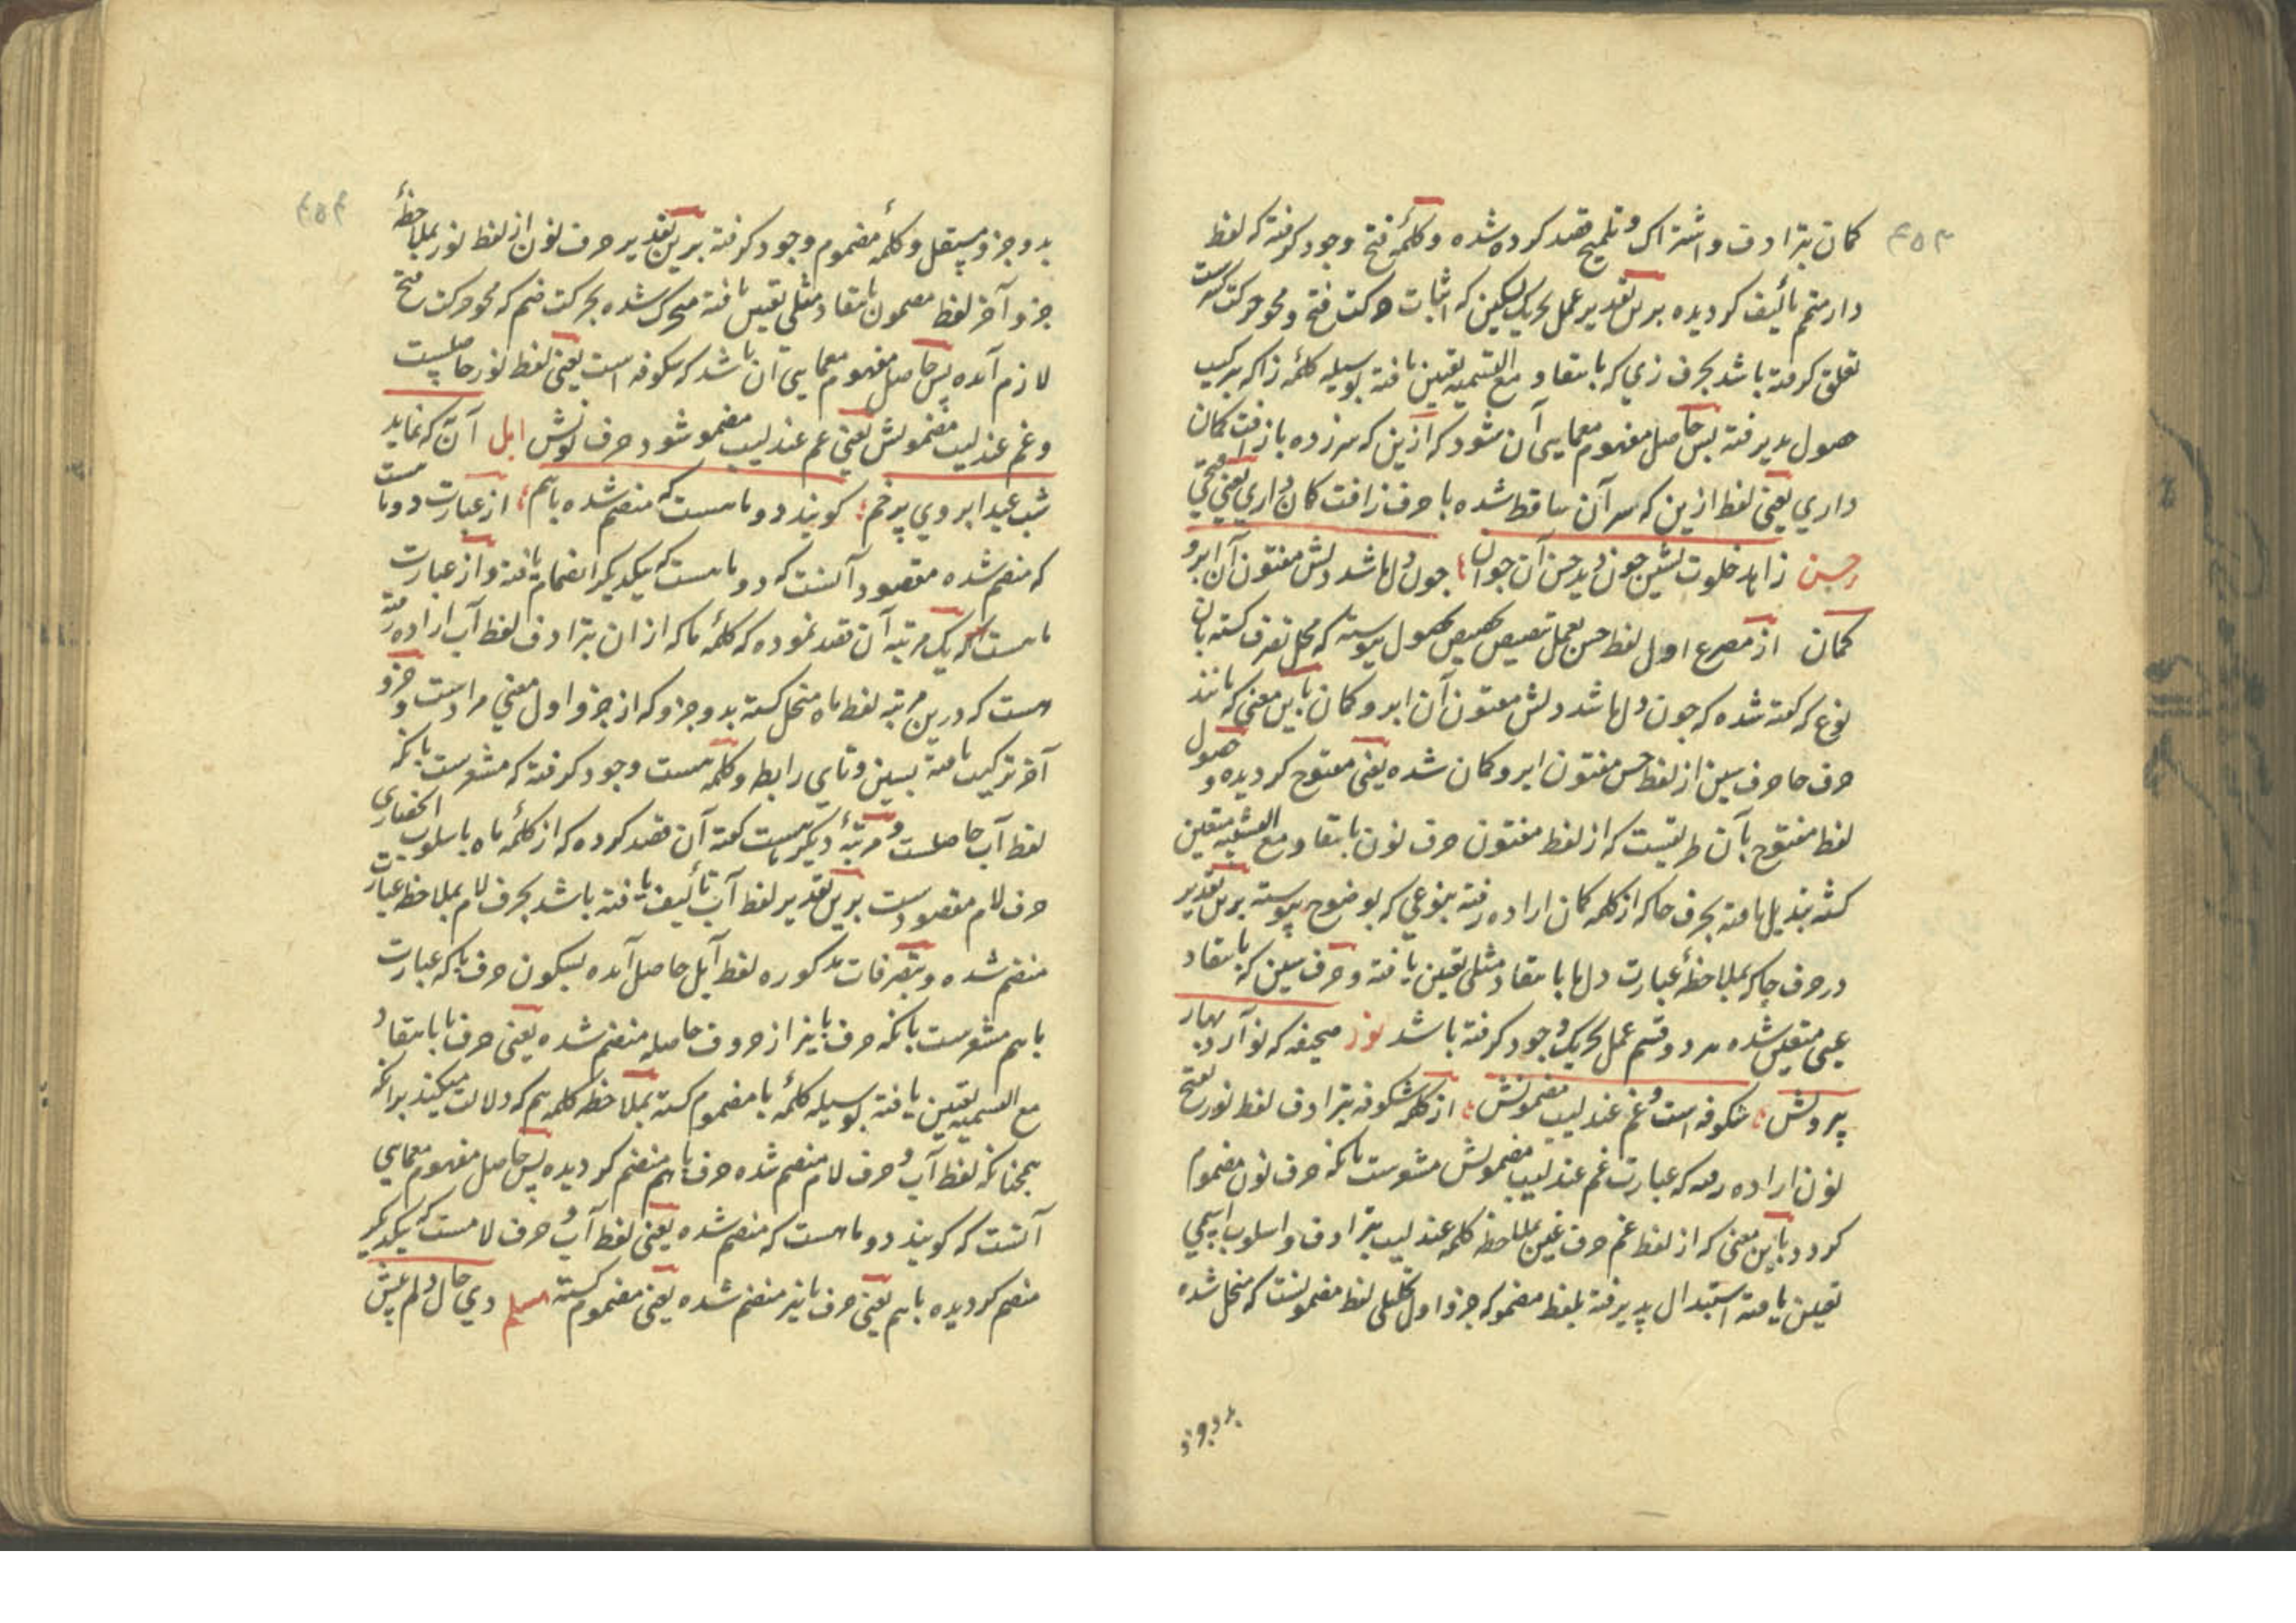 کمان بترادف و اشتراک و تلمیح قصد کرده شده و کلمهٔ فتح وجود کرفته که لفظ
دار منتم تألیف کردیده برین تقدیر عمل تحریک تسکین که اثبات حرکت فتح و محو حرکت
تعلق کرفته باشد بحرف زی که بانتقاد مع التسمیه تعین یافته بوسیله کلمه زا که ترکیب
حصول پذیرفته پس حاصل مفهوم معمایی آن شود که ازین که سر زده باز افت کمان
داری یعنی لفظ ازین که سر آن ساقط شده با حرف زا افت کمان داری یعنی فتحی
حسن زاهد خلوت نشین چون دید حسن آن جوان چون دلها شد دلش مفتون آن ابرو
کمان از مصرع اول لفظ حسن بعمل تنصیص تخصیص حصول پیوسته که محل تصرف کشته بان
نوع که کفته شده که چون دلها شد دلش مفتون آن ابرو کمان باین معنی که مانند
حرف حا حرف سین از لفظ حسن مفتون ابرو کمان شده یعنی مفتوح کردیده و حصول
لفظ مفتوح بآن طریقست که از لفظ مفتون حرف نون بانتقاد مع التشبیه متعین
کشته تبدیل یافته بحرف حا که از کلمه کمان اراده رفته بنوعی که بوضوح پیوسته برین تقدیر
در حرف حا که بملاحظهٔ عبارت دلها بانتقاد مثلی تعین یافته و حرف سین که بانتقاد
عینی متعین شده هر دو قسم عمل تحریک وجود کرفته باشد نور صحیفه که نو آرد بهار
پرورش شکوفه است و غم عندلیب مضمونش از کلمه شکوفه بترادف لفظ نور بفتح
نون اراده رفته که عبارت غم عندلیب مضمونش مشعرست بانکه حرف نون مضموم
کردد باین معنی که از لفظ غم حرف غین بملاحظه کلمه عندلیب بترادف و اسلوب اسمی
تعین یافته استبدال پذیرفته بلفظ مضمو که جزو اول تحلیلی لفظ مضمونست که منحل شده
بدو جزو
بدو جزو مستقل و کلمهٔ مضموم وجود کرفته برین تقدیر حرف نون از لفظ نور بملاحظهٔ
جزو آخر لفظ مضمون بانتقاد مثلی تعین یافته متحرک شده بحرکت ضم که محو حرکت فتح
لازم آمده پس حاصل مفهوم معمایی آن باشد که شکوفه است یعنی لفظ نور حاصلست
و غم عندلیب مضمونش یعنی غم عندلیب مضمو شود حرف نونش ابل آن که نماید
شب عید ابروی پرخم کویند دو ماهست که منضم شده باهم از عبارت دو ماهست
که منضم شده مقصود آنست که دو ماهست که یکدیکر انضمام یافته و از عبارت
ماهست که یک مرتبه آن قصد نموده که کلمهٔ ما که از ان بترادف لفظ آب اراده رفته
هست که درین مرتبه لفظ ماه منحل کشته بدو جزو که از جزو اول معنی مرادست و جزو
آخر ترکیب یافته بسین و تای رابط و کلمه هست وجود کرفته که مشعرست بانکه
لفظ آب حاصلست و مرتبهٔ دیکر ماهست کفته آن قصد کرده که از کلمهٔ ماه باسلوب انحصاری
حرف لام مقصودست برین تقدیر لفظ آب تألیف یافته باشد بحرف لام بملاحظه عبارت
منضم شده و بتصرفات مذکوره لفظ آبل حاصل آمده بسکون حرف با که عبارت
باهم مشعرست بانکه حرف با نیز از حروف حاصله منضم شده یعنی حرف با بانتقاد
مع التسمیه تعین یافته بوسیله کلمهٔ با مضموم کشته بملاحظه کلمه هم که دلالت میکند برانکه
همچنانکه لفظ آب و حرف لام منضم شده حرف با هم منضم کردیده پس حاصل مفهوم معمایی
آنست که کویند دو ماهست که منضم شده یعنی لفظ آب و حرف لامست که یکدیکر
منضم کردیده باهم یعنی حرف با نیز منضم شده یعنی مضموم کشته مسلم دی حال دلم پیش